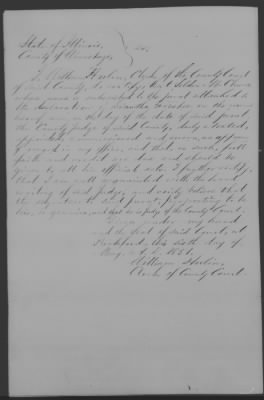 State of Illinois,
County of Winnebago, } ss.
I, William Hulin, Clerk of the County Court
of said County, do certify that Selden M. Church
whose name is subscribed to the jurat attached to
the declaration of on the
hereof, was on the day of the date of said jurat
the County Judge of said County, duly elected,
commissioned and sworn, as appears
of record in my office, and that as such, full
faith and credit are due and should be
given to all his official acts. I further certify
that I am well acquainted with the hand
writing of said Judge, and verily believe that
the signature to said jurat, purporting to be
his, is genuine, and that he is judge of the County Court.
Given under my hand
and the seal of said Court, at
Rockford this sixth day of
A. D. 1851.
William Hulin,
Clerk of County Court.